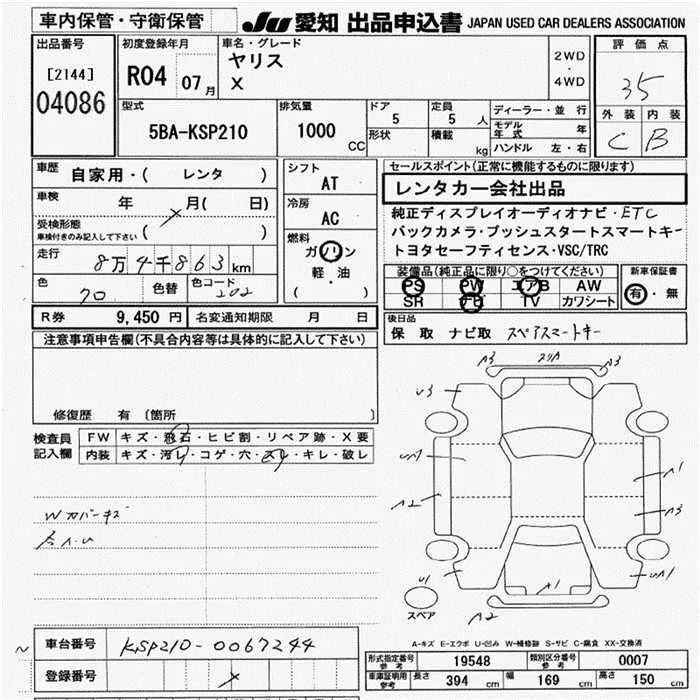 車内保管・守衛保管
JU 愛知 出品申込書 JAPAN USED CAR DEALERS ASSOCIATION
出品番号
[2144]
04086
初度登録年月
R04 07月
車名・グレード
ヤリス
X
2WD
・
4WD
評価点
35
外装 内装
C B
型式
5BA-KSP210
排気量
1000 CC
ドア
5
形状
定員
5 人
積載 kg
ディーラー・並行
モデル年式 年
ハンドル 左・右
車歴
自家用・( レンタ )
車検 年 月( 日)
受検形態
車検付きのみ記入して下さい ( )
走行 8万4千863km
色 クロ 色替 色コード 202
シフト
AT
冷房
AC
燃料
ガソリン
軽・油
( )
R券 9,450 円 名変通知期限 月 日
セールスポイント(正常に機能するものに限ります)
レンタカー会社出品
純正ディスプレイオーディオナビ・ETC
バックカメラ・プッシュスタートスマートキー
トヨタセーフティセンス・VSC/TRC
装備品(純正品に限り○をつけてください)
PS PW エアB AW
SR ナビ TV カワシート
新車保証書
有・無
後日品
保 取 ナビ取 スペアスマートキー
注意事項申告欄(不具合内容等は具体的に記入して下さい)
修復歴 有 〔箇所 〕
検査員記入欄
FW キズ・飛石・ヒビ割・リペア跡・X要
内装 キズ・汚レ・コゲ・穴・スレ・キレ・破レ
Wカバーキズ
A3 A3
U3
A2
A1
A3
U1 A1
スペア
A2
A-キズ E-エクボ U-凹み W-補修跡 S-サビ C-腐食 XX-交換済
車台番号 KSP210-0067244
登録番号
形式指定番号参考 19548 類別区分番号参考 0007
車庫証明用参考 長さ 394 cm 幅 169 cm 高さ 150 cm